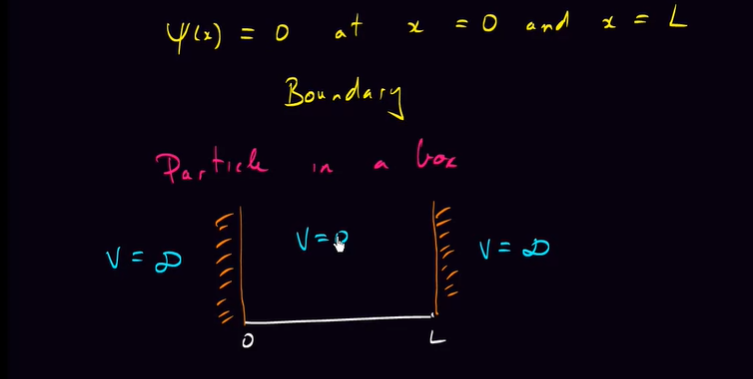 Ψ(x) = 0 at x = 0 and x = L
Boundary
Particle in a box
V = ∞ V = 0 V = ∞
0 L